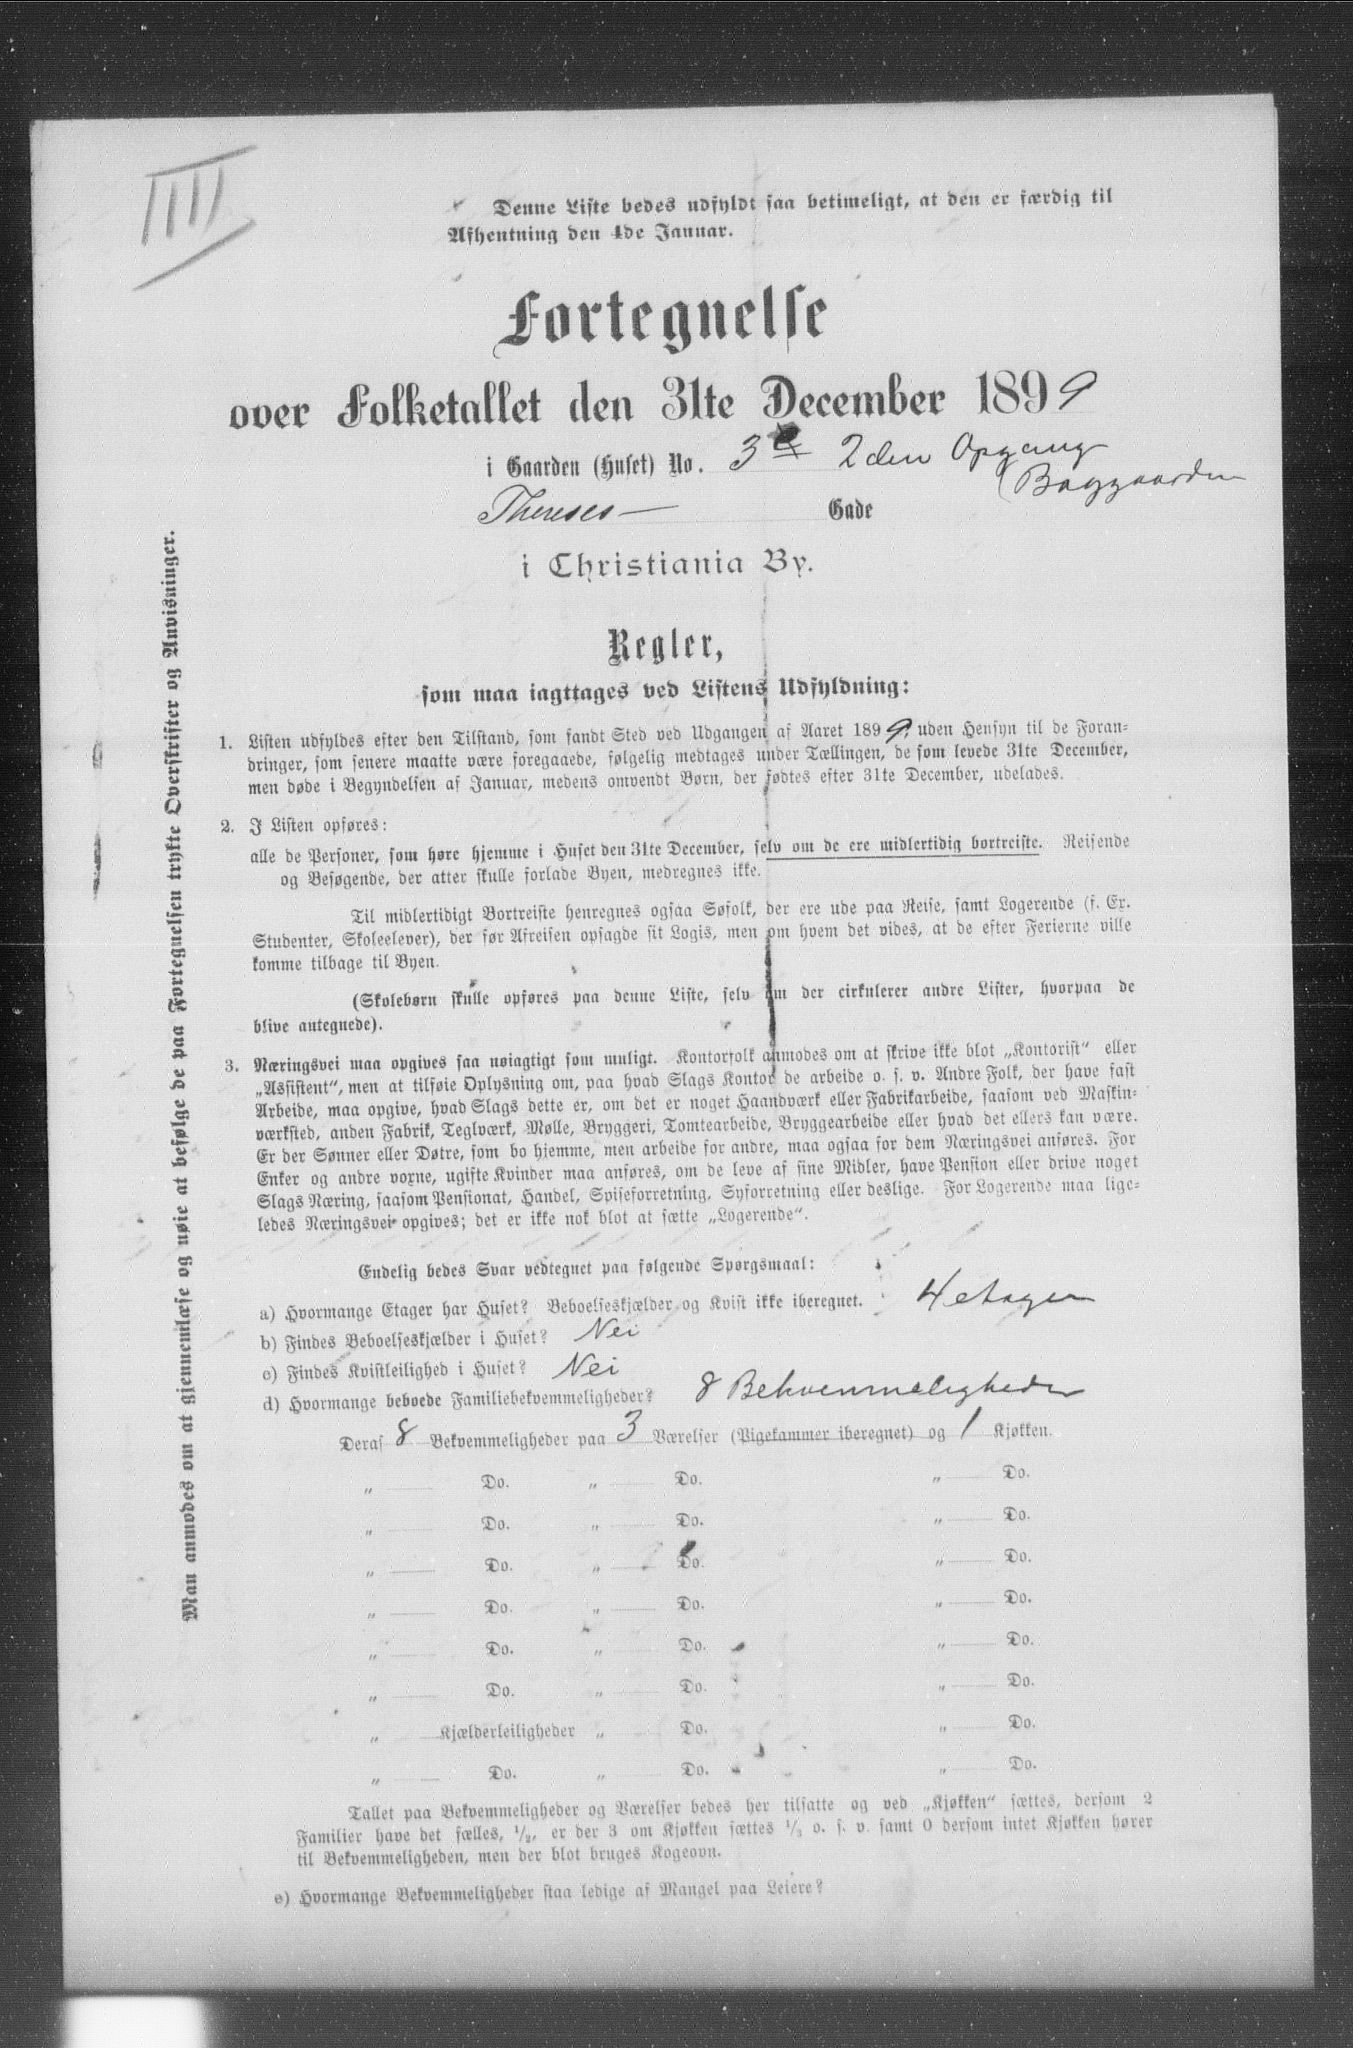 IIII
Denne Liste bedes udfyldt saa betimeligt, at den er færdig til
Afhentning den 4de Januar.
Fortegnelse
over Folketallet den 31te December 1899
i Gaarden (Huset) No. 3 2den Opgang
(Baggaarden
Thereses Gade
i Christiania By.
Regler,
som maa iagttages ved Listens Udfyldning:
1. Listen udfyldes efter den Tilstand, som fandt Sted ved Udgangen af Aaret 1899, uden Hensyn til de Foran-
dringer, som senere maatte være foregaaede, følgelig medtages under Tællingen, de som levede 31te December,
men døde i Begyndelsen af Januar, medens omvendt Børn, der fødtes efter 31te December, udelades.
2. I Listen opføres:
alle de Personer, som høre hjemme i Huset den 31te December, selv om de ere midlertidig bortreiste. Reisende
og Besøgende, der atter skulle forlade Byen, medregnes ikke.
Til midlertidigt Bortreiste henregnes ogsaa Søfolk, der ere ude paa Reise, samt Logerende (f. Ex.
Studenter, Skoleelever), der før Afreisen opsagde sit Logis, men om hvem det vides, at de efter Ferierne ville
komme tilbage til Byen.
(Skolebørn skulle opføres paa denne Liste, selv om der cirkulerer andre Lister, hvorpaa de
blive antegnede).
3. Næringsvei maa opgives saa nøiagtigt som muligt. Kontorfolk anmodes om at skrive ikke blot „Kontorist“ eller
„Assistent“, men at tilføie Oplysning om, paa hvad Slags Kontor de arbeide o. s. v. Andre Folk, der have fast
Arbeide, maa opgive, hvad Slags dette er, om det er noget Haandværk eller Fabrikarbeide, saasom ved Maskin-
værksted, anden Fabrik, Teglværk, Mølle, Bryggeri, Tomtearbeide, Bryggearbeide eller hvad det ellers kan være.
Er der Sønner eller Døtre, som bo hjemme, men arbeide for andre, maa ogsaa for dem Næringsvei anføres. For
Enker og andre voxne, ugifte Kvinder maa anføres, om de leve af sine Midler, have Pension eller drive noget
Slags Næring, saasom Pensionat, Handel, Spiseforretning, Syforretning eller deslige. For Logerende maa lige-
ledes Næringsvei opgives; det er ikke nok blot at sætte „Logerende“.
Endelig bedes Svar vedtegnet paa følgende Spørgsmaal:
a) Hvormange Etager har Huset? Beboelseskjælder og Kvist ikke iberegnet. 4 etager
b) Findes Beboelseskjælder i Huset? Nei
c) Findes Kvistleilighed i Huset? Nei
d) Hvormange beboede Familiebekvemmeligheder? 8 Bekvemmeligheder
Deraf 8 Bekvemmeligheder paa 3 Værelser (Pigekammer iberegnet) og 1 Kjøkken.
„ Do. „ Do. „ Do.
„ Do. „ Do. „ Do.
„ Do. „ Do. „ Do.
„ Do. „ Do. „ Do.
„ Do. „ Do. „ Do.
„ Do. „ Do. „ Do.
„ Kjælderleiligheder „ Do. „ Do.
„ Do. „ Do. „ Do.
Tallet paa Bekvemmeligheder og Værelser bedes her tilsatte og ved „Kjøkken“ sættes, dersom 2
Familier have det fælles, 1/2, er der 3 om Kjøkken sættes 1/3 o. s. v. samt 0 dersom intet Kjøkken hører
til Bekvemmeligheden, men der blot bruges Kogeovn.
e) Hvormange Bekvemmeligheder staa ledige af Mangel paa Leiere?
Man anmodes om at gjennemlæse og nøie at befølge de paa Fortegnelsen trykte Overskrifter og Anvisninger.